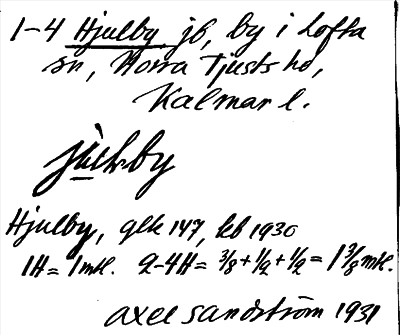 1-4 Hjulby jb, by i Lofta
sn, Norra Tjusts hd,
Kalmar l.
Hjulby, glk 147, kb 1930
1H = 1 mtl. 2-4H = 3/8 + 1/2 + 1/2 = 1 3/8 mtl.
Axel Sandström 1931